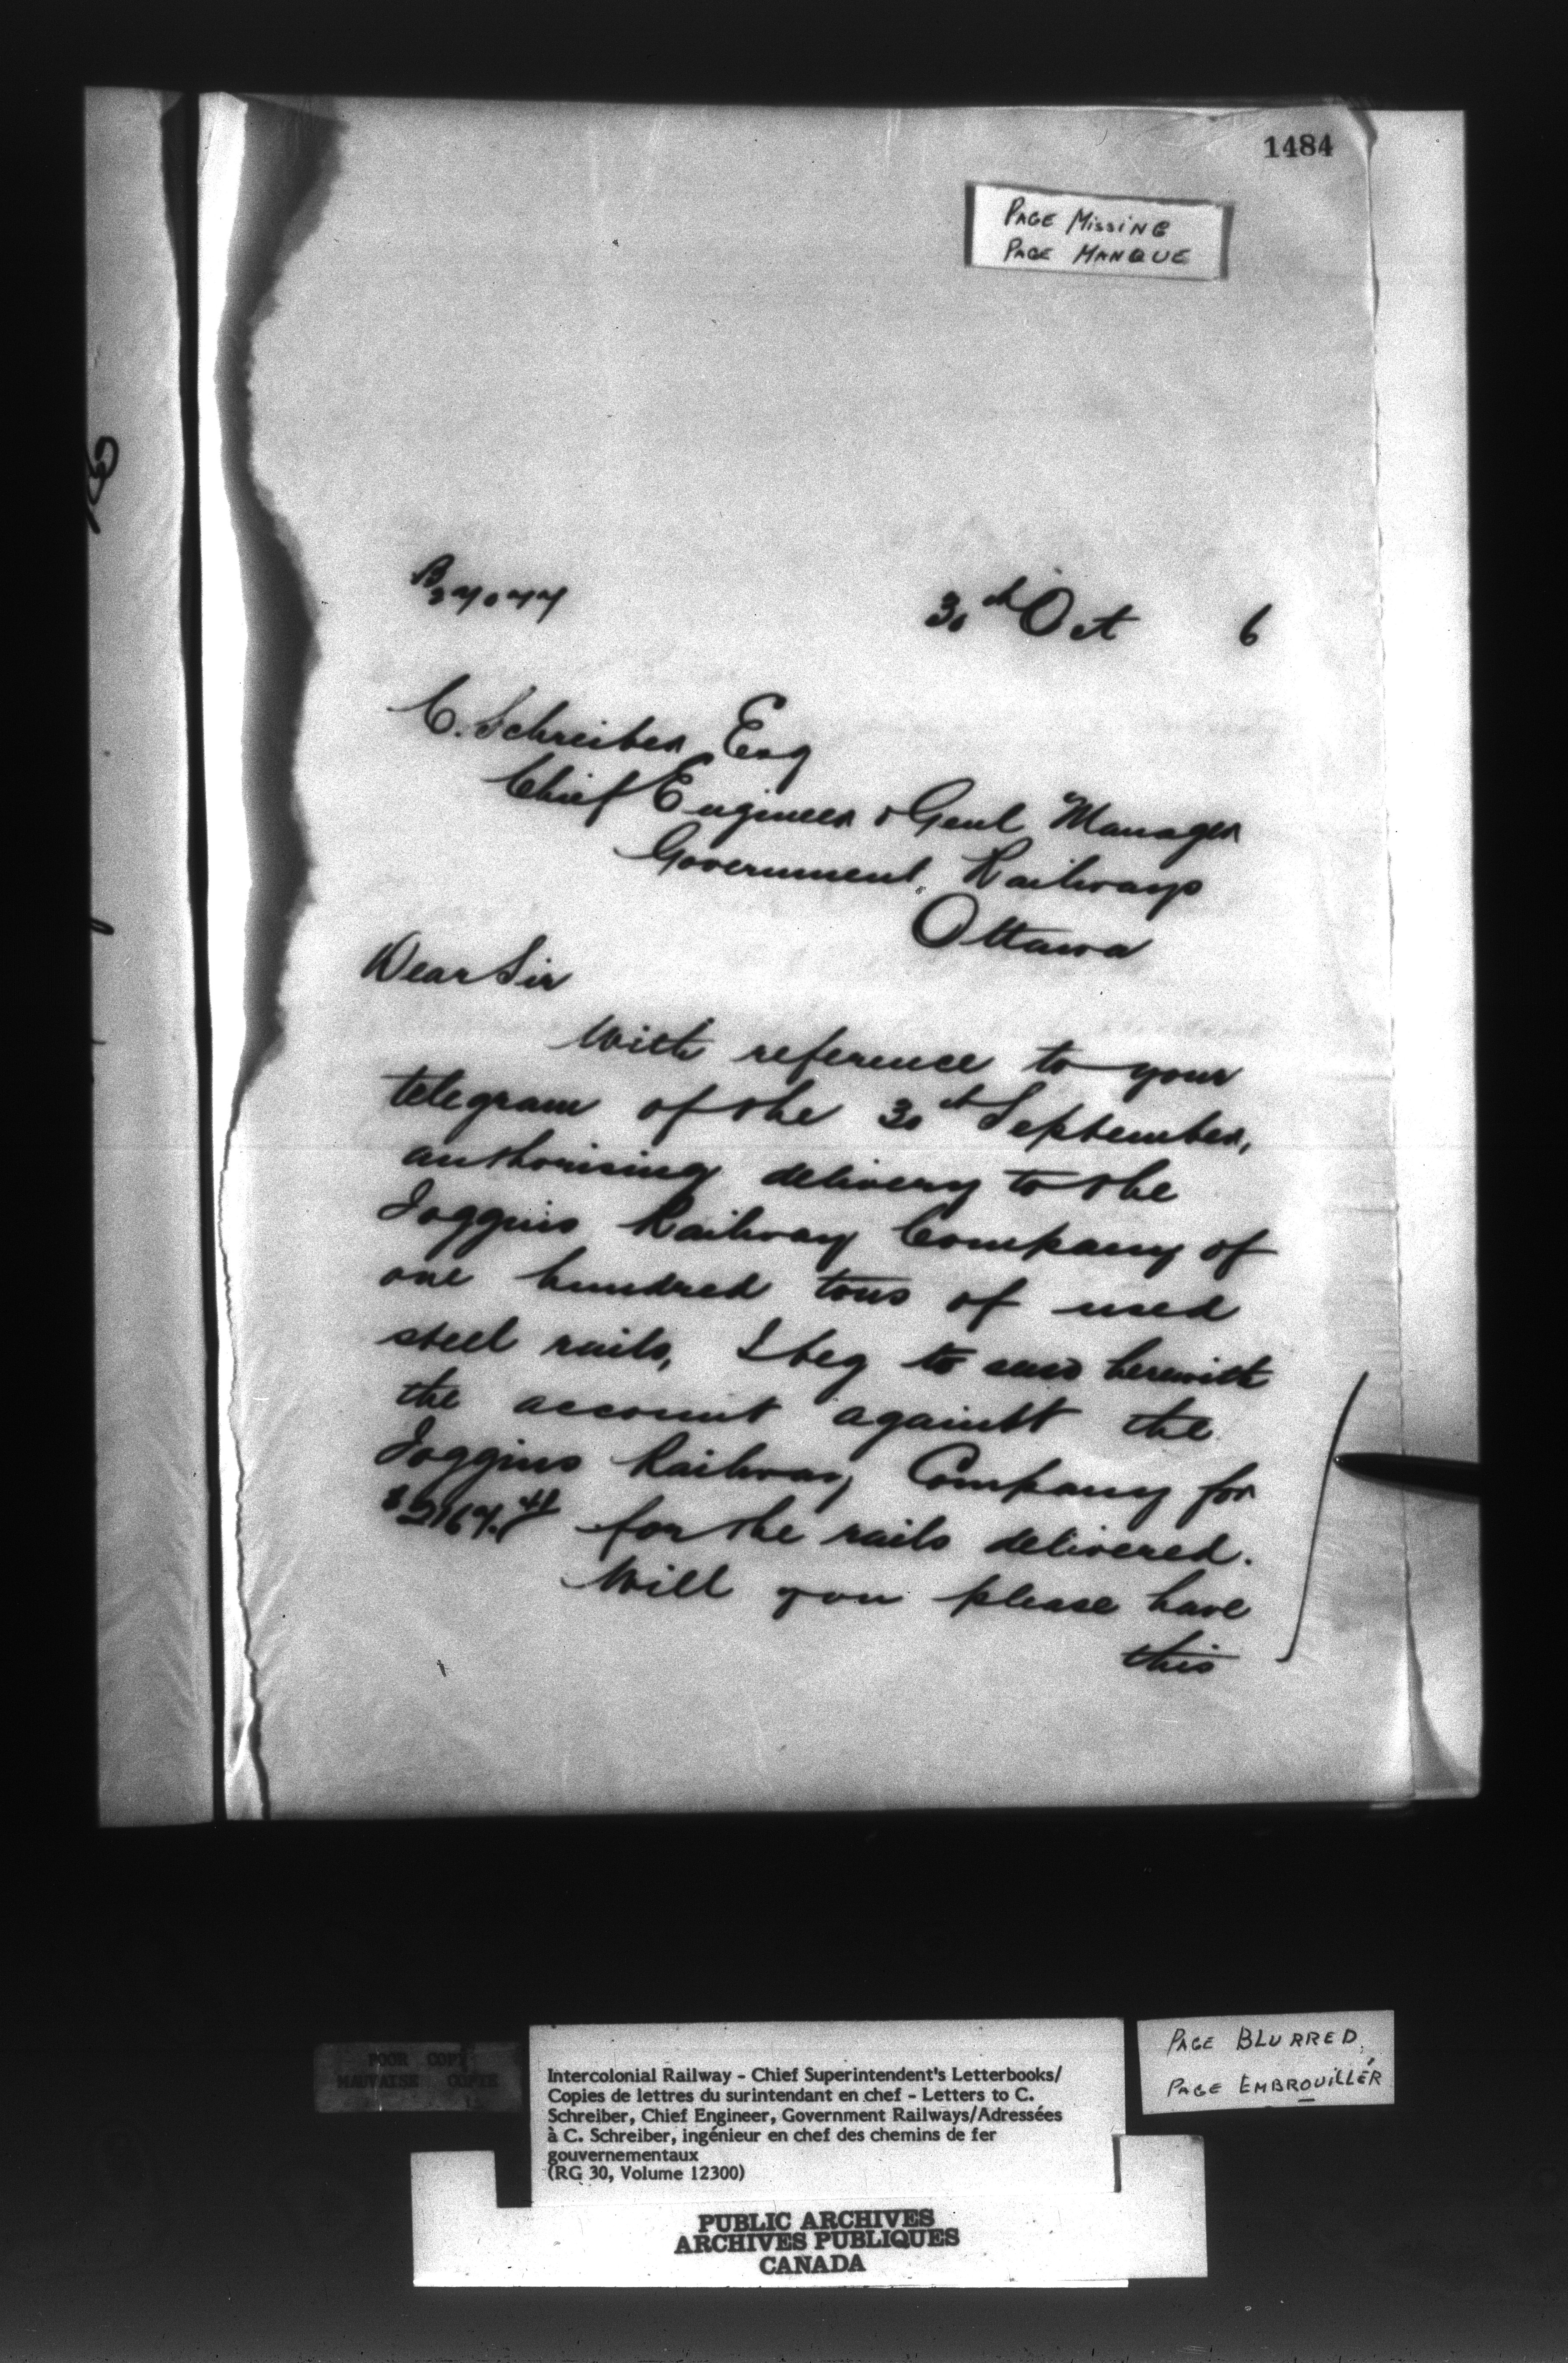 1484
PAGE MISSING
PAGE MANQUE
30th Oct 6
C. Schreiber Esq
Chief Engineer & Genl Manager
Government Railways
Ottawa
Dear Sir
With reference to your
telegram of the 30th September,
authorising delivery to the
Joggins Railway Company of
one hundred tons of used
steel rails, I beg to send herewith
the account against the
Joggins Railway Company for
for the rails delivered.
Will you please have
this
POOR COPY
MAUVAISE COPIE
Intercolonial Railway - Chief Superintendent's Letterbooks/
Copies de lettres du surintendant en chef - Letters to C.
Schreiber, Chief Engineer, Government Railways/Adressées
à C. Schreiber, ingénieur en chef des chemins de fer
gouvernementaux
(RG 30, Volume 12300)
PAGE BLURRED
PAGE EMBROUILLÉR
PUBLIC ARCHIVES
ARCHIVES PUBLIQUES
CANADA